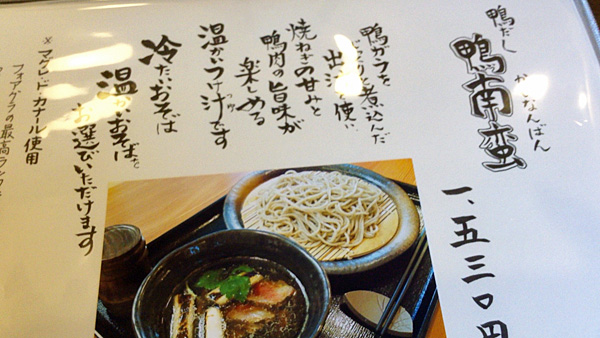 鴨だし
かもなんばん
鴨南蛮
一、五三〇円
鴨ガラを
じっくりと煮込んだ
出汁を使い
焼ねぎの甘みと
鴨肉の旨味が
楽しめる
温かいつけ汁です
つゆ
冷たいおそば
温かいおそばと
お選びいただけます
※マグレ・ド・カナール使用